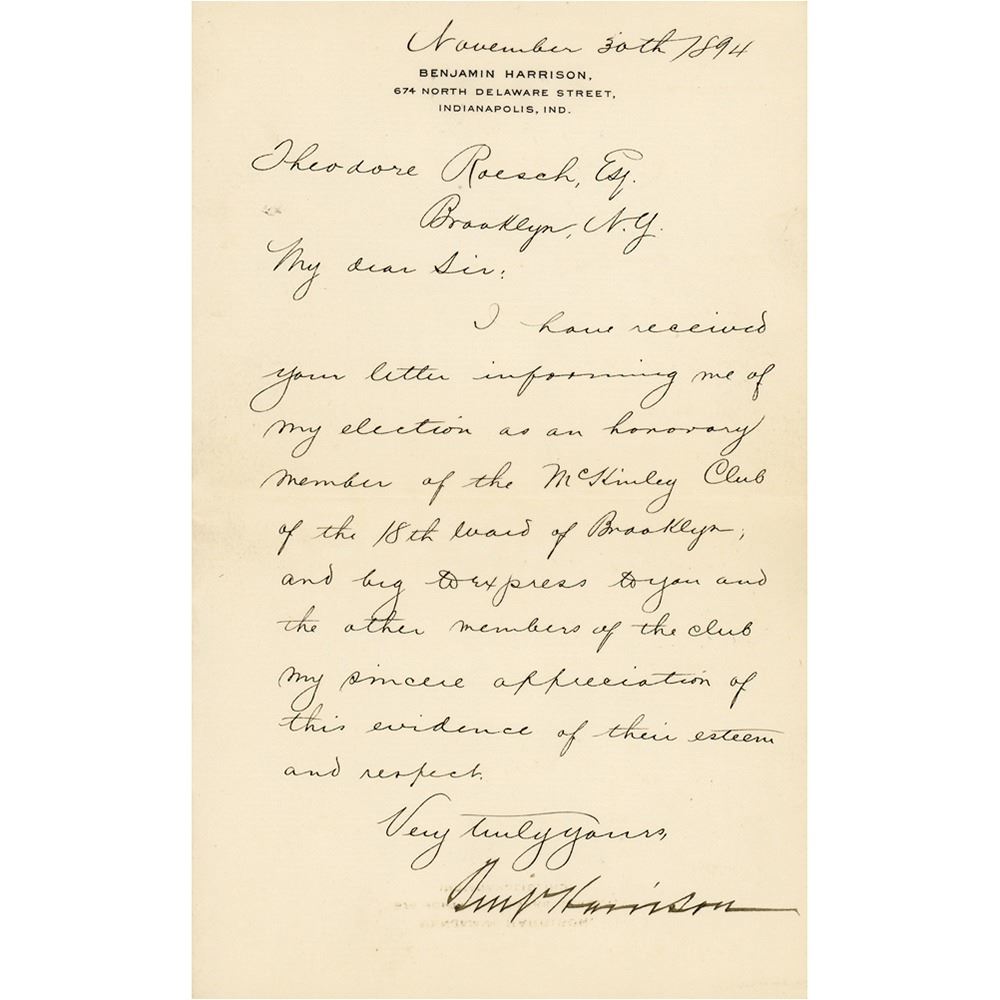 November 30th 1894
BENJAMIN HARRISON,
674 NORTH DELAWARE STREET,
INDIANAPOLIS, IND.
Theodore Roesch, Esq.
Brooklyn, N.Y.
My dear Sir:
I have received
your letter informing me of
my election as an honorary
member of the McKinley Club
of the 18th Ward of Brooklyn,
and beg to express to you and
the other members of the club
my sincere appreciation of
this evidence of their esteem
and respect.
Very truly yours,
Benj Harrison